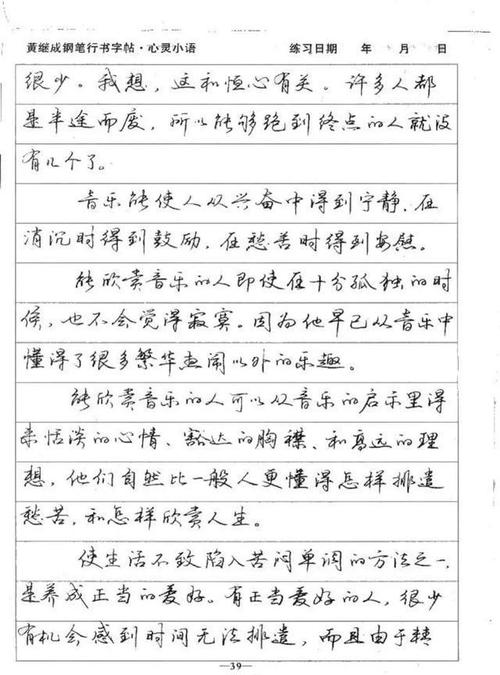 黄继成钢笔行书字帖·心灵小语 练习日期 年 月 日
很少。我想，这和恒心有关。许多人都
是半途而废，所以能够跑到终点的人就没
有几个了。
音乐能使人从兴奋中得到宁静，在
消沉时得到鼓励，在愁苦时得到安慰。
能欣赏音乐的人即使在十分孤独的时
候，也不会觉得寂寞。因为他早已从音乐中
懂得了很多繁华热闹以外的乐趣。
能欣赏音乐的人可以从音乐的启示里得
来恬淡的心情、豁达的胸襟、和高远的理
想，他们自然比一般人更懂得怎样排遣
愁苦，和怎样欣赏人生。
使生活不致陷入苦闷单调的方法之一，
是养成正当的爱好。有正当爱好的人，很少
有机会感到时间无法排遣，而且由于精
—39—